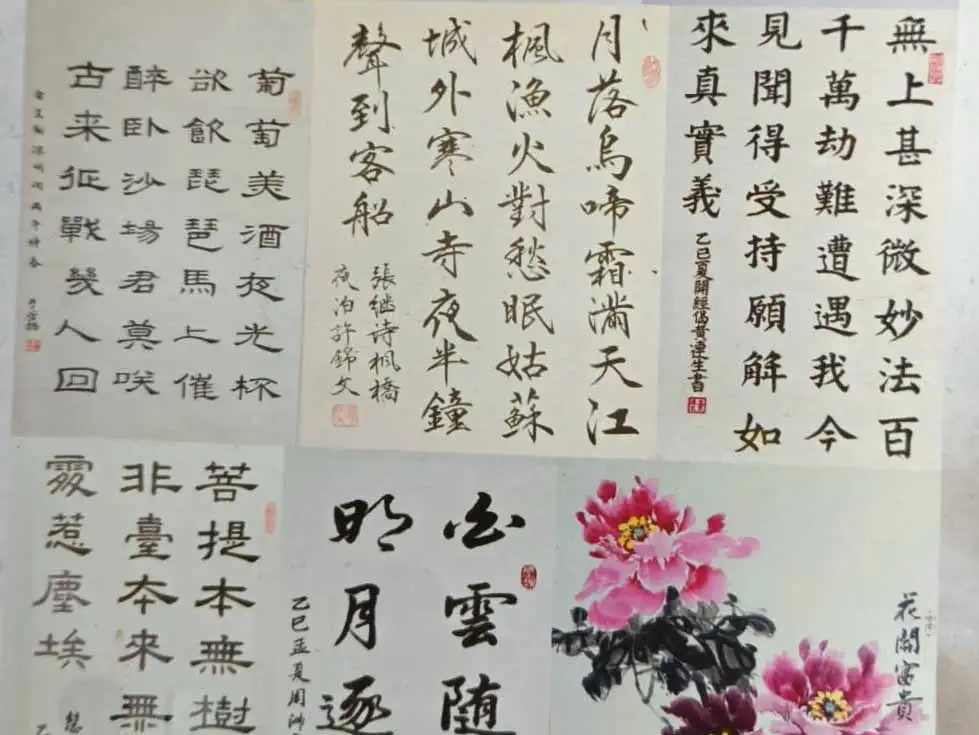 無上甚深微妙法百
千萬劫難遭遇我今
見聞得受持願解如
來真實義
乙巳夏開經偈黃連生書
月落烏啼霜滿天江
楓漁火對愁眠姑蘇
城外寒山寺夜半鐘
聲到客船
張继诗楓橋
夜泊許錦文
葡萄美酒夜光杯
欲飲琵琶馬上催
醉卧沙場君莫咲
古来征戰幾人回
花開富貴
白雲随
明月逐
乙巳孟夏周沛
菩提本無樹
非臺本來無
處惹塵埃